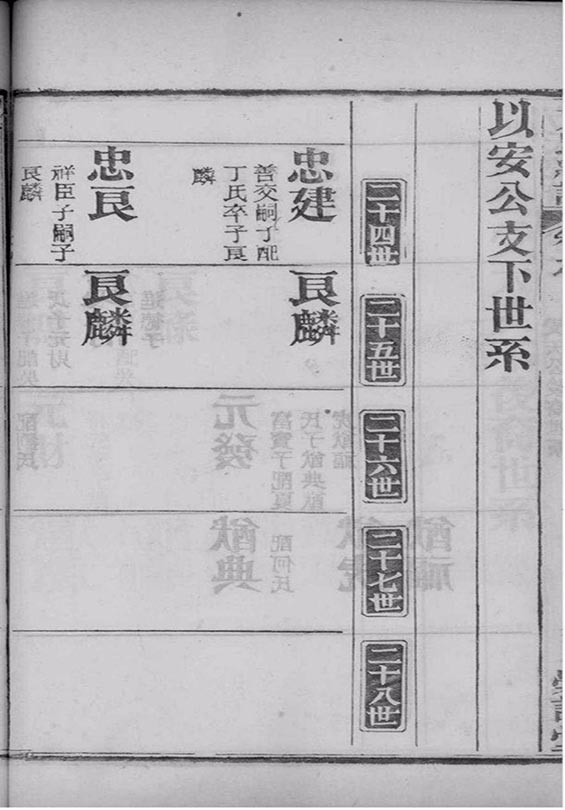 以安公支下世系
二十四世
二十五世
二十六世
二十七世
二十八世
忠建
善交嗣子配
丁氏卒子良
麟
良麟
忠良
祥臣子嗣子
良麟
良麟